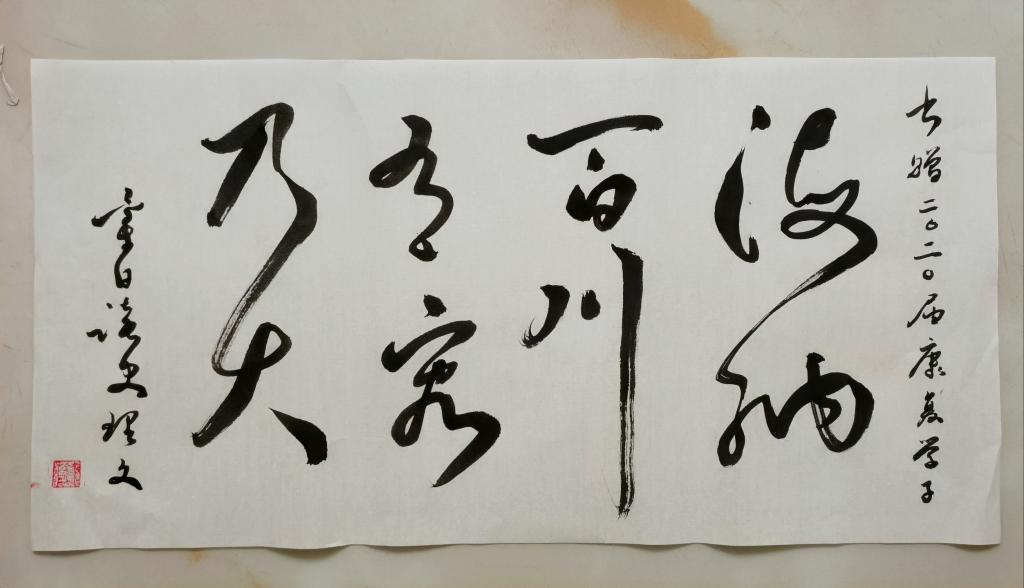 书赠二〇二〇届康复学子
海纳
百川
有容
乃大
童日谈史理文